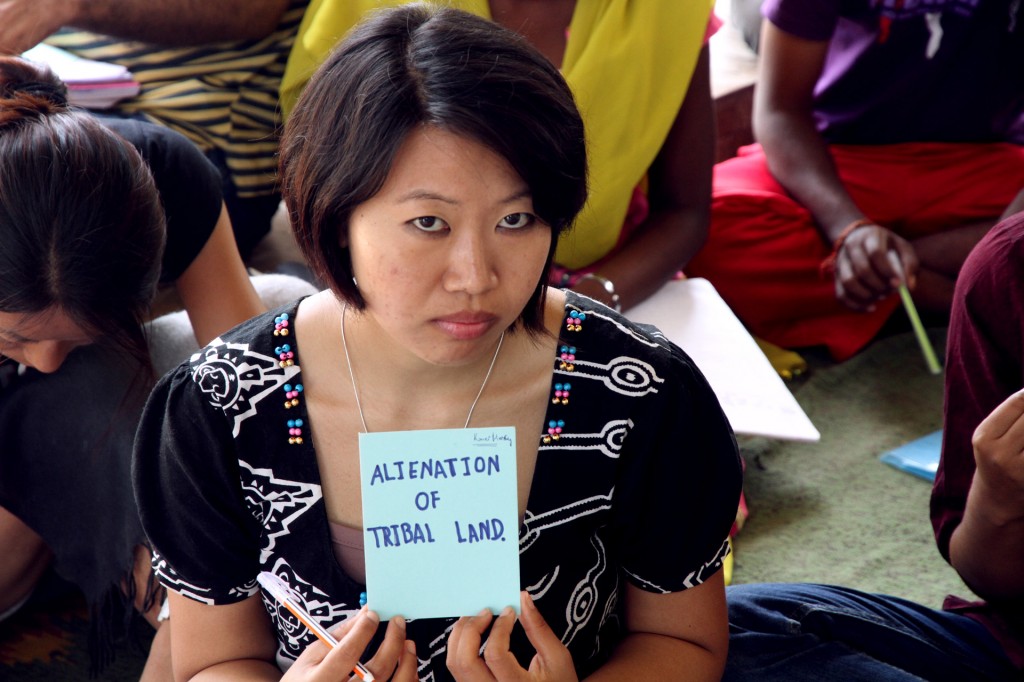 ALIENATION
OF
TRIBAL LAND.